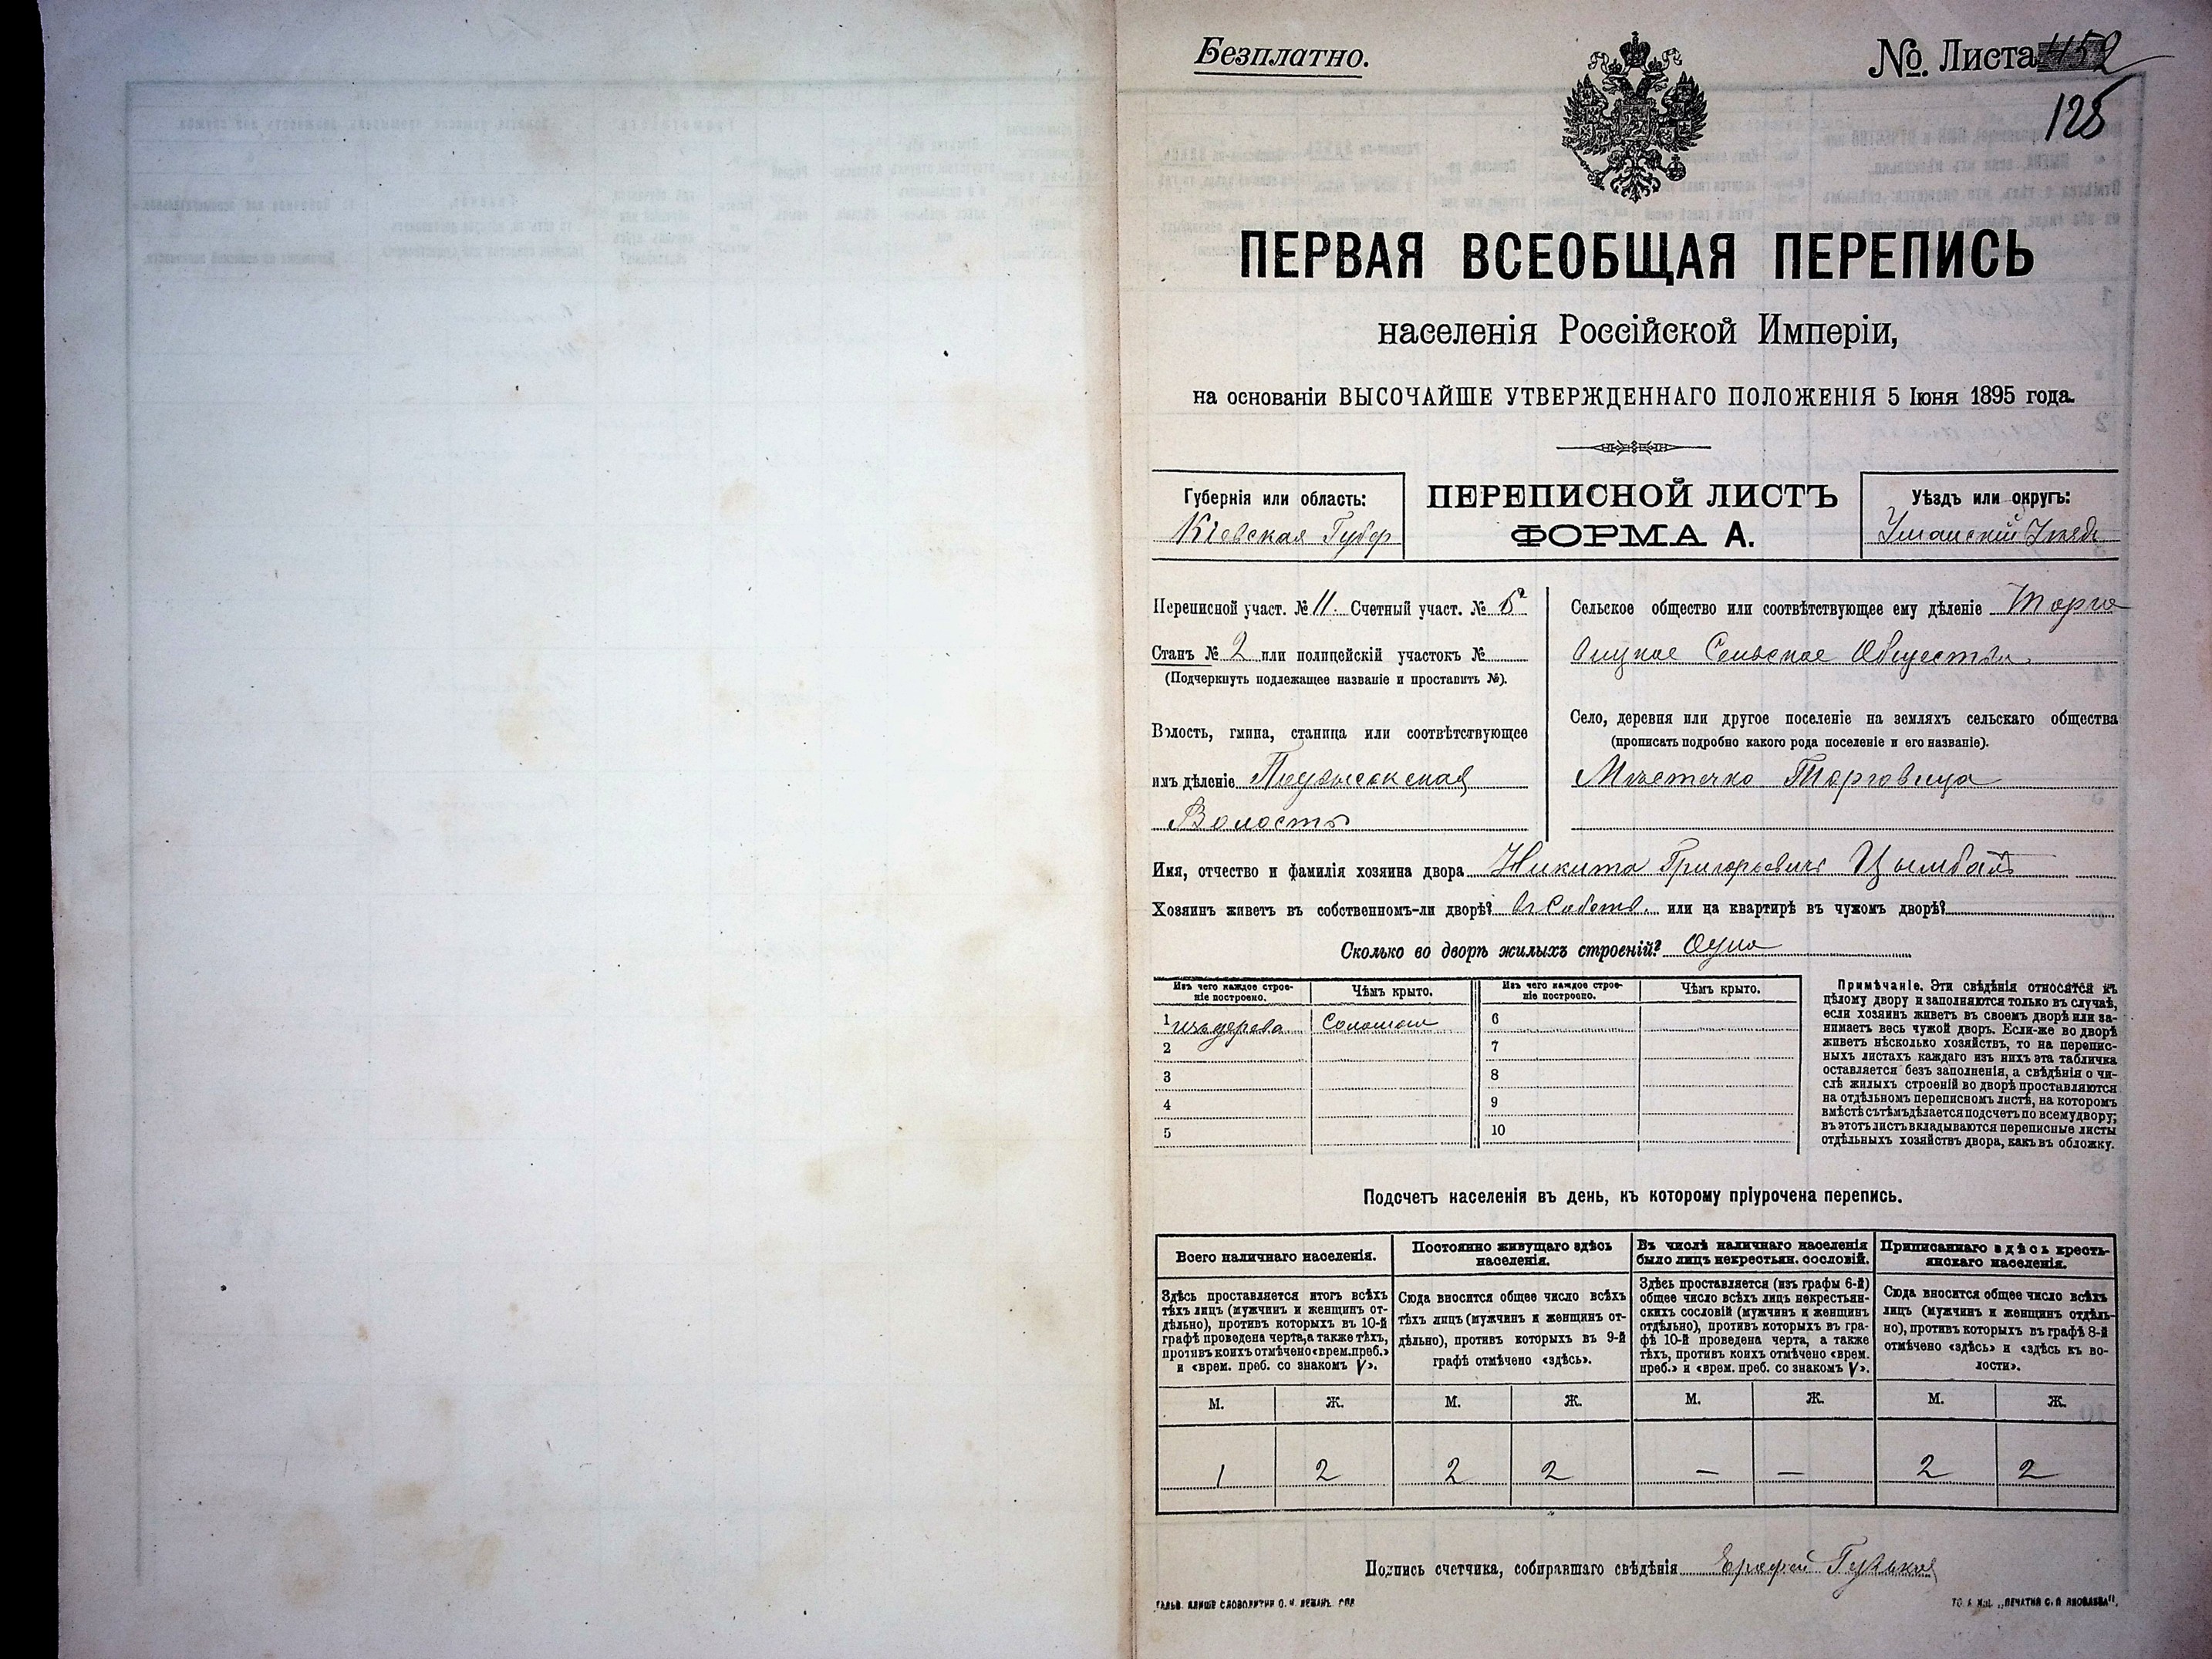 Безплатно.
№ Листа 452
128
ПЕРВАЯ ВСЕОБЩАЯ ПЕРЕПИСЬ
населенія Россійской Имперіи,
на основаніи ВЫСОЧАЙШЕ УТВЕРЖДЕННАГО ПОЛОЖЕНІЯ 5 Іюня 1895 года.
Губернія или область:
Кіевская Губер
ПЕРЕПИСНОЙ ЛИСТЪ
ФОРМА А.
Уѣздъ или округъ:
Уманскій Уѣздъ
Переписной участ. № 11. Счетный участ. №
Станъ № 2 или полицейскій участокъ №
(Подчеркнуть подлежащее названіе и проставить №).
Волость, гмина, станица или соотвѣтствующее
имъ дѣленіе Подвысокская
Волость
Сельское общество или соотвѣтствующее ему дѣленіе Торго
вицкое Сельское Общество
Село, деревня или другое поселеніе на земляхъ сельскаго общества
(прописать подробно какого рода поселеніе и его названіе).
Мѣстечко Торговица
Имя, отчество и фамилія хозяина двора Никита Григорьевичъ Цымбалъ
Хозяинъ живетъ въ собственномъ-ли дворѣ? Въ Собств. или на квартирѣ въ чужомъ дворѣ?
Сколько во дворѣ жилыхъ строеній? Одно
Изъ чего каждое строе-
ніе построено.
Чѣмъ крыто.
Изъ чего каждое строе-
ніе построено.
Чѣмъ крыто.
1 изъ дерева Соломою 6
2 7
3 8
4 9
5 10
Примѣчаніе. Эти свѣдѣнія относятся къ
цѣлому двору и заполняются только въ случаѣ,
если хозяинъ живетъ въ своемъ дворѣ или за-
нимаетъ весь чужой дворъ. Если-же во дворѣ
живетъ нѣсколько хозяйствъ, то на перепис-
ныхъ листахъ каждаго изъ нихъ эта табличка
оставляется безъ заполненія, а свѣдѣнія о чи-
слѣ жилыхъ строеній во дворѣ проставляются
на отдѣльномъ переписномъ листѣ, на которомъ
вмѣстѣ съ тѣмъ дѣлается подсчетъ по всему двору;
въ этотъ листъ вкладываются переписные листы
отдѣльныхъ хозяйствъ двора, какъ въ обложку.
Подсчетъ населенія въ день, къ которому пріурочена перепись.
Всего наличнаго населенія.
Здѣсь проставляется итогъ всѣхъ
тѣхъ лицъ (мужчинъ и женщинъ от-
дѣльно), противъ которыхъ въ 10-й
графѣ проведена черта, а также тѣхъ,
противъ коихъ отмѣчено «врем. преб.»
и «врем. преб. со знакомъ V».
Постоянно живущаго здѣсь
населенія.
Сюда вносится общее число всѣхъ
тѣхъ лицъ (мужчинъ и женщинъ от-
дѣльно), противъ которыхъ въ 9-й
графѣ отмѣчено «здѣсь».
Въ числѣ наличнаго населенія
было лицъ некрестьян. сословій.
Здѣсь проставляется (изъ графы 6-й)
общее число всѣхъ лицъ некрестьян-
скихъ сословій (мужчинъ и женщинъ
отдѣльно), противъ которыхъ въ гра-
фѣ 10-й проведена черта, а также
тѣхъ, противъ коихъ отмѣчено «врем.
преб.» и «врем. преб. со знакомъ V».
Приписаннаго здѣсь кресть-
янскаго населенія.
Сюда вносится общее число всѣхъ
лицъ (мужчинъ и женщинъ отдѣль-
но), противъ которыхъ въ графѣ 8-й
отмѣчено «здѣсь» и «здѣсь къ во-
лости».
М. Ж. М. Ж. М. Ж. М. Ж.
1 2 2 2 — — 2 2
Подпись счетчика, собиравшаго свѣдѣнія